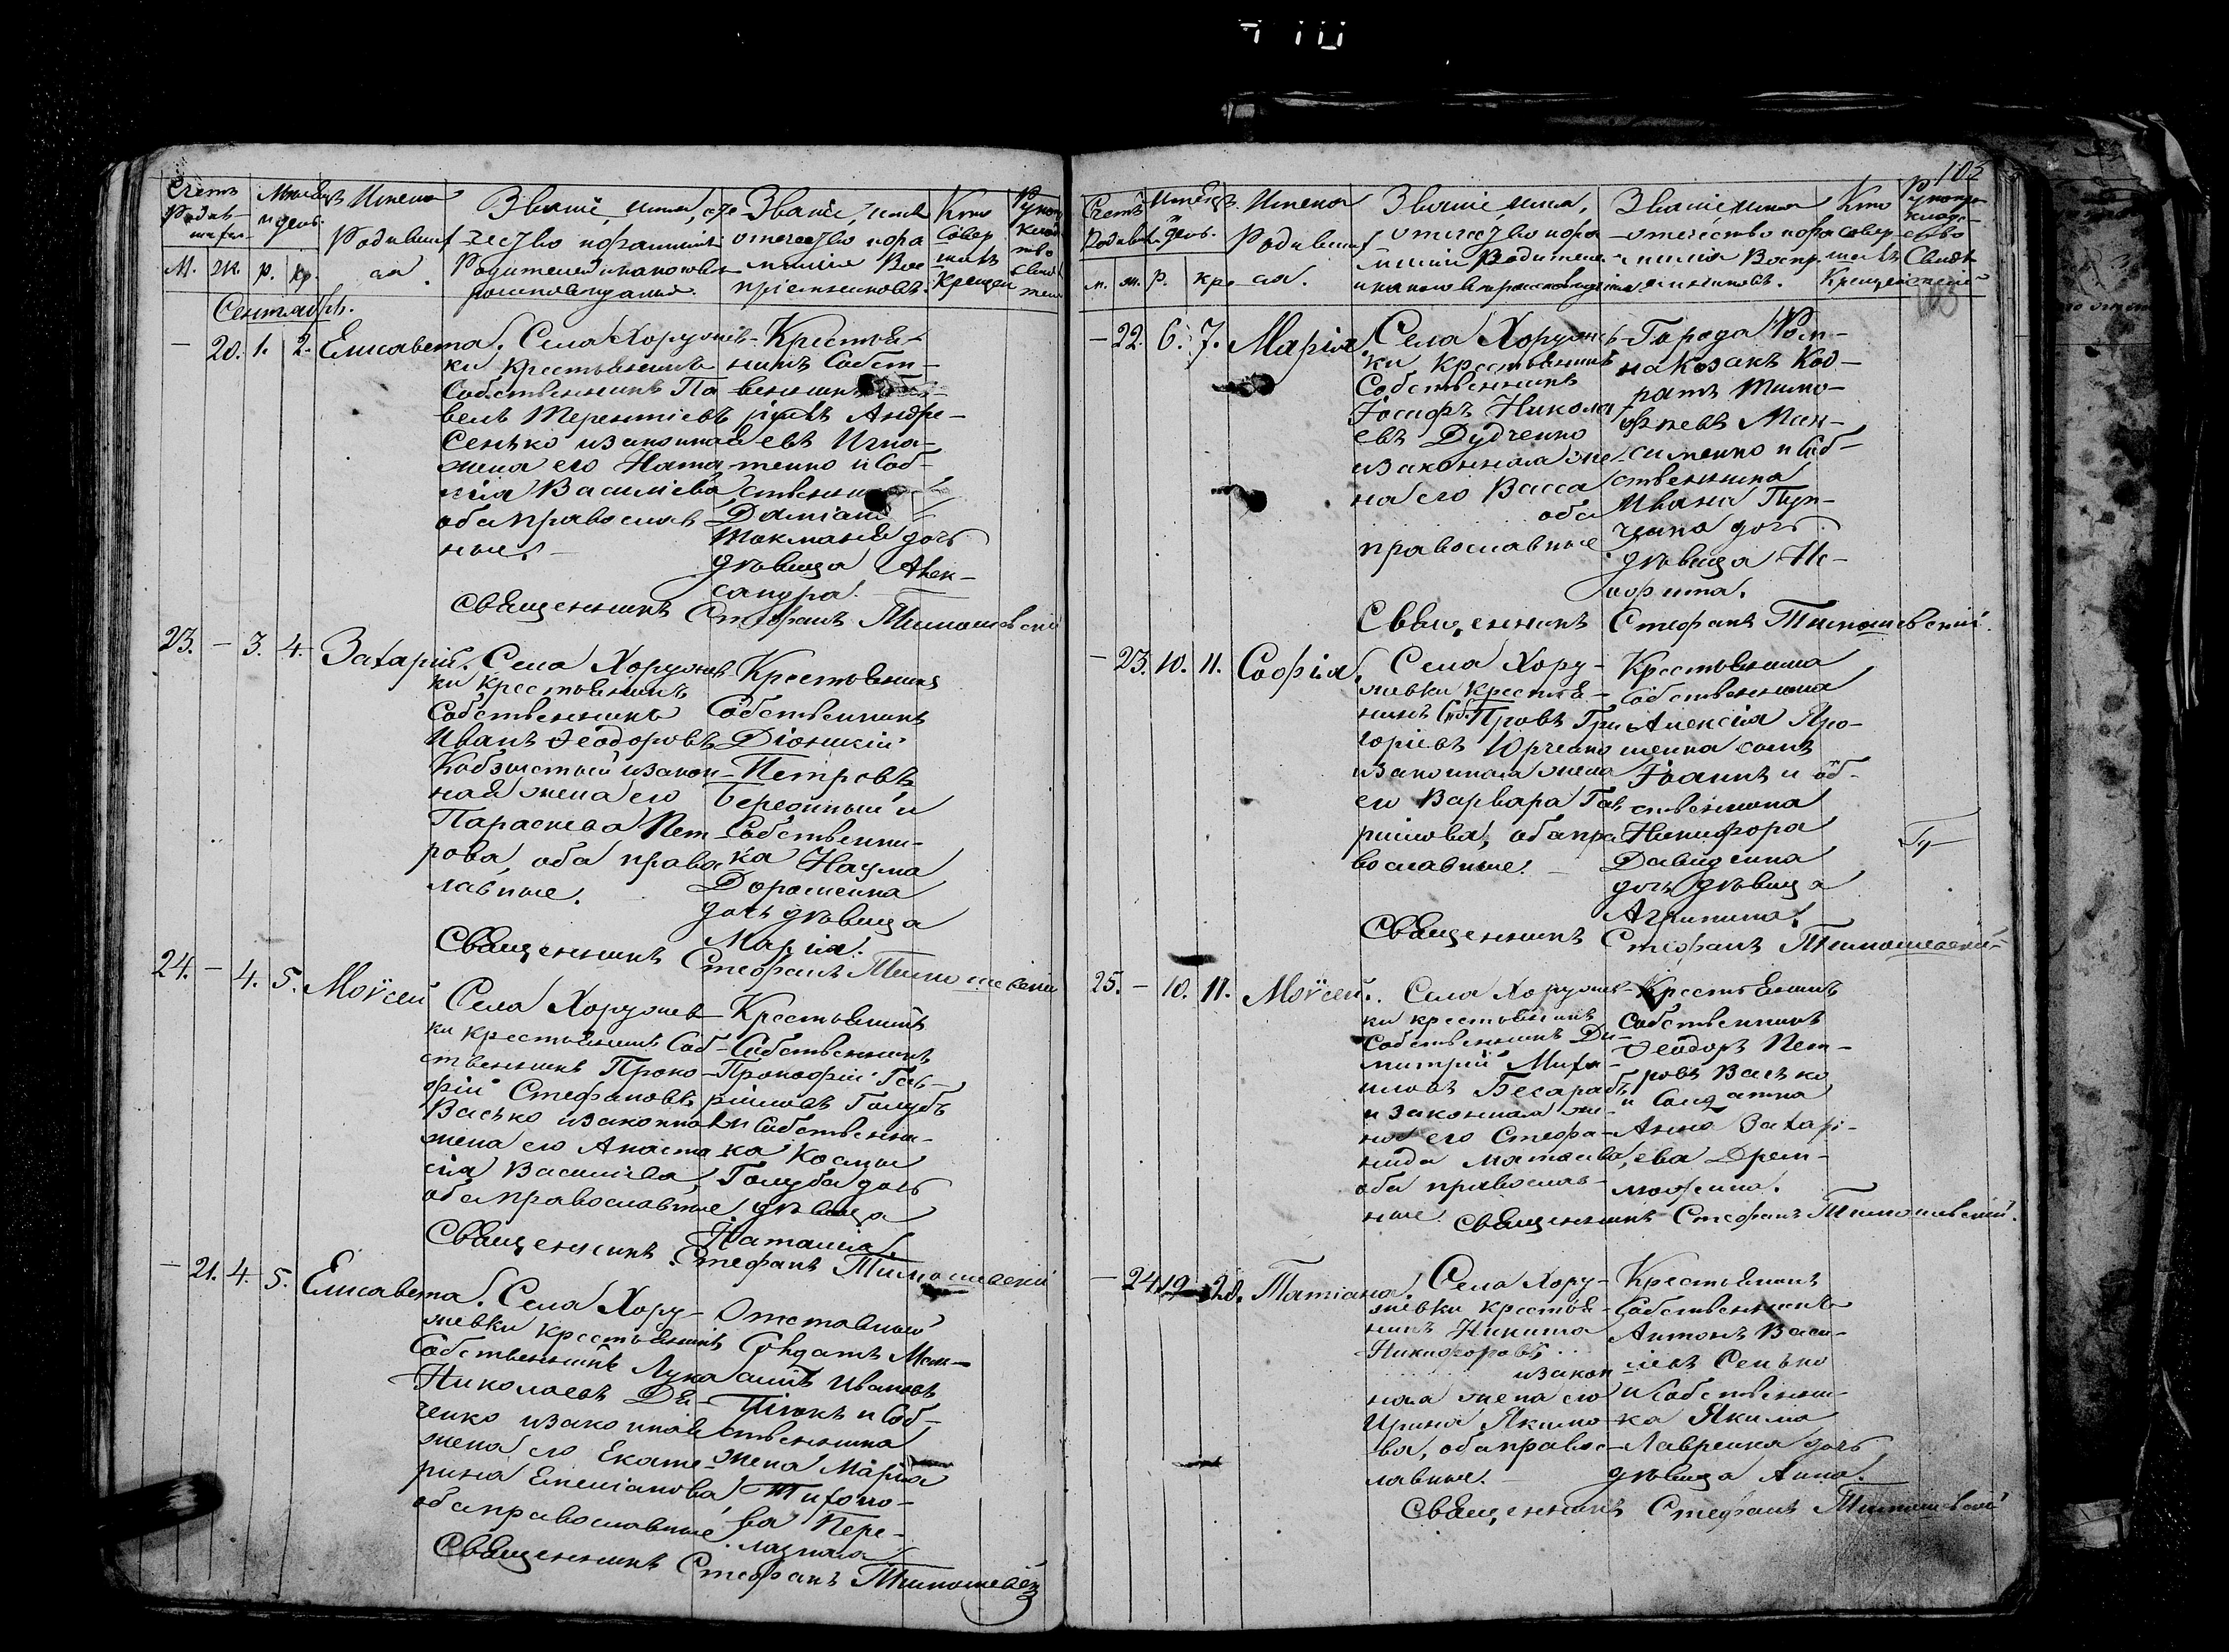 Счетъ
Родив-
М. Ж.
Месяцъ
и день.
р. кр.
Имена
Родивших
ся.
Званіе, имя, оте
чество и фамилія
Родителей и какого ве
роисповеданія.
Званіе, имя
отечество и фа
милія Вос
пріемниковъ.
Кто
совер
шалъ
Крещен
Рукоп
Сентябрь.
— 20. 1. 2. Елисавета.
Села Хоружев-
ки крестьянинъ
Собственникъ Па
велъ Терентіевъ
Сенько и законная
жена его Ната
лія Василіева
оба православ
ные. —
Крестья-
нинъ Собст-
венникъ
Андре-
евъ Игна-
тенко и Соб-
ственника
Даміана
Токмана дочь
девица Алек-
сандра.
Священникъ Стефанъ Тимошевскій
23. — 3. 4. Захарій.
Села Хоружев
ки крестьянинъ
Собственникъ
Иванъ Ѳеодоровъ
Кобзистый и закон-
ная жена его
Параскева Пет
рова, оба правос
лавные.
Крестьянинъ
Собственникъ
Діонисій
Петровъ
и
Собственни-
ка Наума
Дорошенка
дочь девица
Марія.
Священникъ Стефанъ Тимошевскій
24. — 4. 5. Моѵсей
Села Хоружев
ки крестьянинъ Соб-
ственникъ Проко-
фій Стефановъ
Васько и законная
жена его Анаста
сія Василіева,
оба православные.
Крестьянинъ
Собственникъ
Прокофій Гав-
ріиловъ Голубъ
и Собственни-
ка Космы
Голуба дочь
девица
Наталія.
Священникъ Стефанъ Тимошевскій
— 21. 4. 5. Елисавета.
Села Хору-
жевки крестьянинъ
Собственникъ Лука
Николаевъ Дя-
ченко и законная
жена его Екате-
рина Емеліанова
оба православные
Отставный
Солдатъ Мак-
симъ Ивановъ
и Соб-
ственника
жена Марія
Тихоно-
ва Пере-
лазная
Священникъ Стефанъ Тимошевскій
103
Счетъ
Родив
м. ж.
Месяц.
и день.
р. кр.
Имена
Родивших
ся.
Званіе, имя,
отечество и фа
милія Родителе
Званіе имя
отечество и фа
милія Воспр.
Кто
совер-
шалъ
Крещеніе
— 22. 6. 7. Марія
Села Хоружев-
ки крестьянинъ
Собственникъ
Іосифъ Никола
евъ Дудченко
и законная же
на его Васса
оба
православные
Города Ром-
на Козакъ Код-
ратъ Тимо-
феевъ Мак-
сименко и Соб-
ственника
Ивана
дочь
девица
Священникъ Стефанъ Тимошевскій.
— 23. 10. 11. Софія.
Села Хору-
жевки крестья-
нинъ Соб. Провъ Гри
горіевъ Юрченко
и законная жена
его Варвара Гав
риилова, оба пра
вославные. —
Крестьянина
Собственника
Алексія Яро-
шенка сынъ
Іоаннъ и соб-
ственника
Никифора
Давиденка
дочь девица
Агрипина.
Священникъ Стефанъ Тимошевскій
25. — 10. 11. Моѵсей.
Села Хоружев-
ки крестьянинъ
Собственникъ Ди-
митрій Миха-
иловъ Бесарабъ
и законная же-
на его Стефа-
нида Матѳеева,
оба православ-
ные.
Крестьянинъ
Собственникъ
Ѳеодоръ Пет-
ровъ Васько
и Солдатка
Анна Захарі-
ева
Священникъ Стефанъ Тимошевскій.
— 24. 19. 20. Татіана.
Села Хору-
жевки крестья-
нинъ Никита
Никифоровъ
и закон
ная жена его
Ирина Якимо
ва, оба правос-
лавные. —
Крестьянинъ
Собственникъ
Антонъ Васи-
ліевъ Сенько
и Собственни-
ка Якима
Лавренка дочь
девица Анна.
Священникъ Стефанъ Тимошевскій